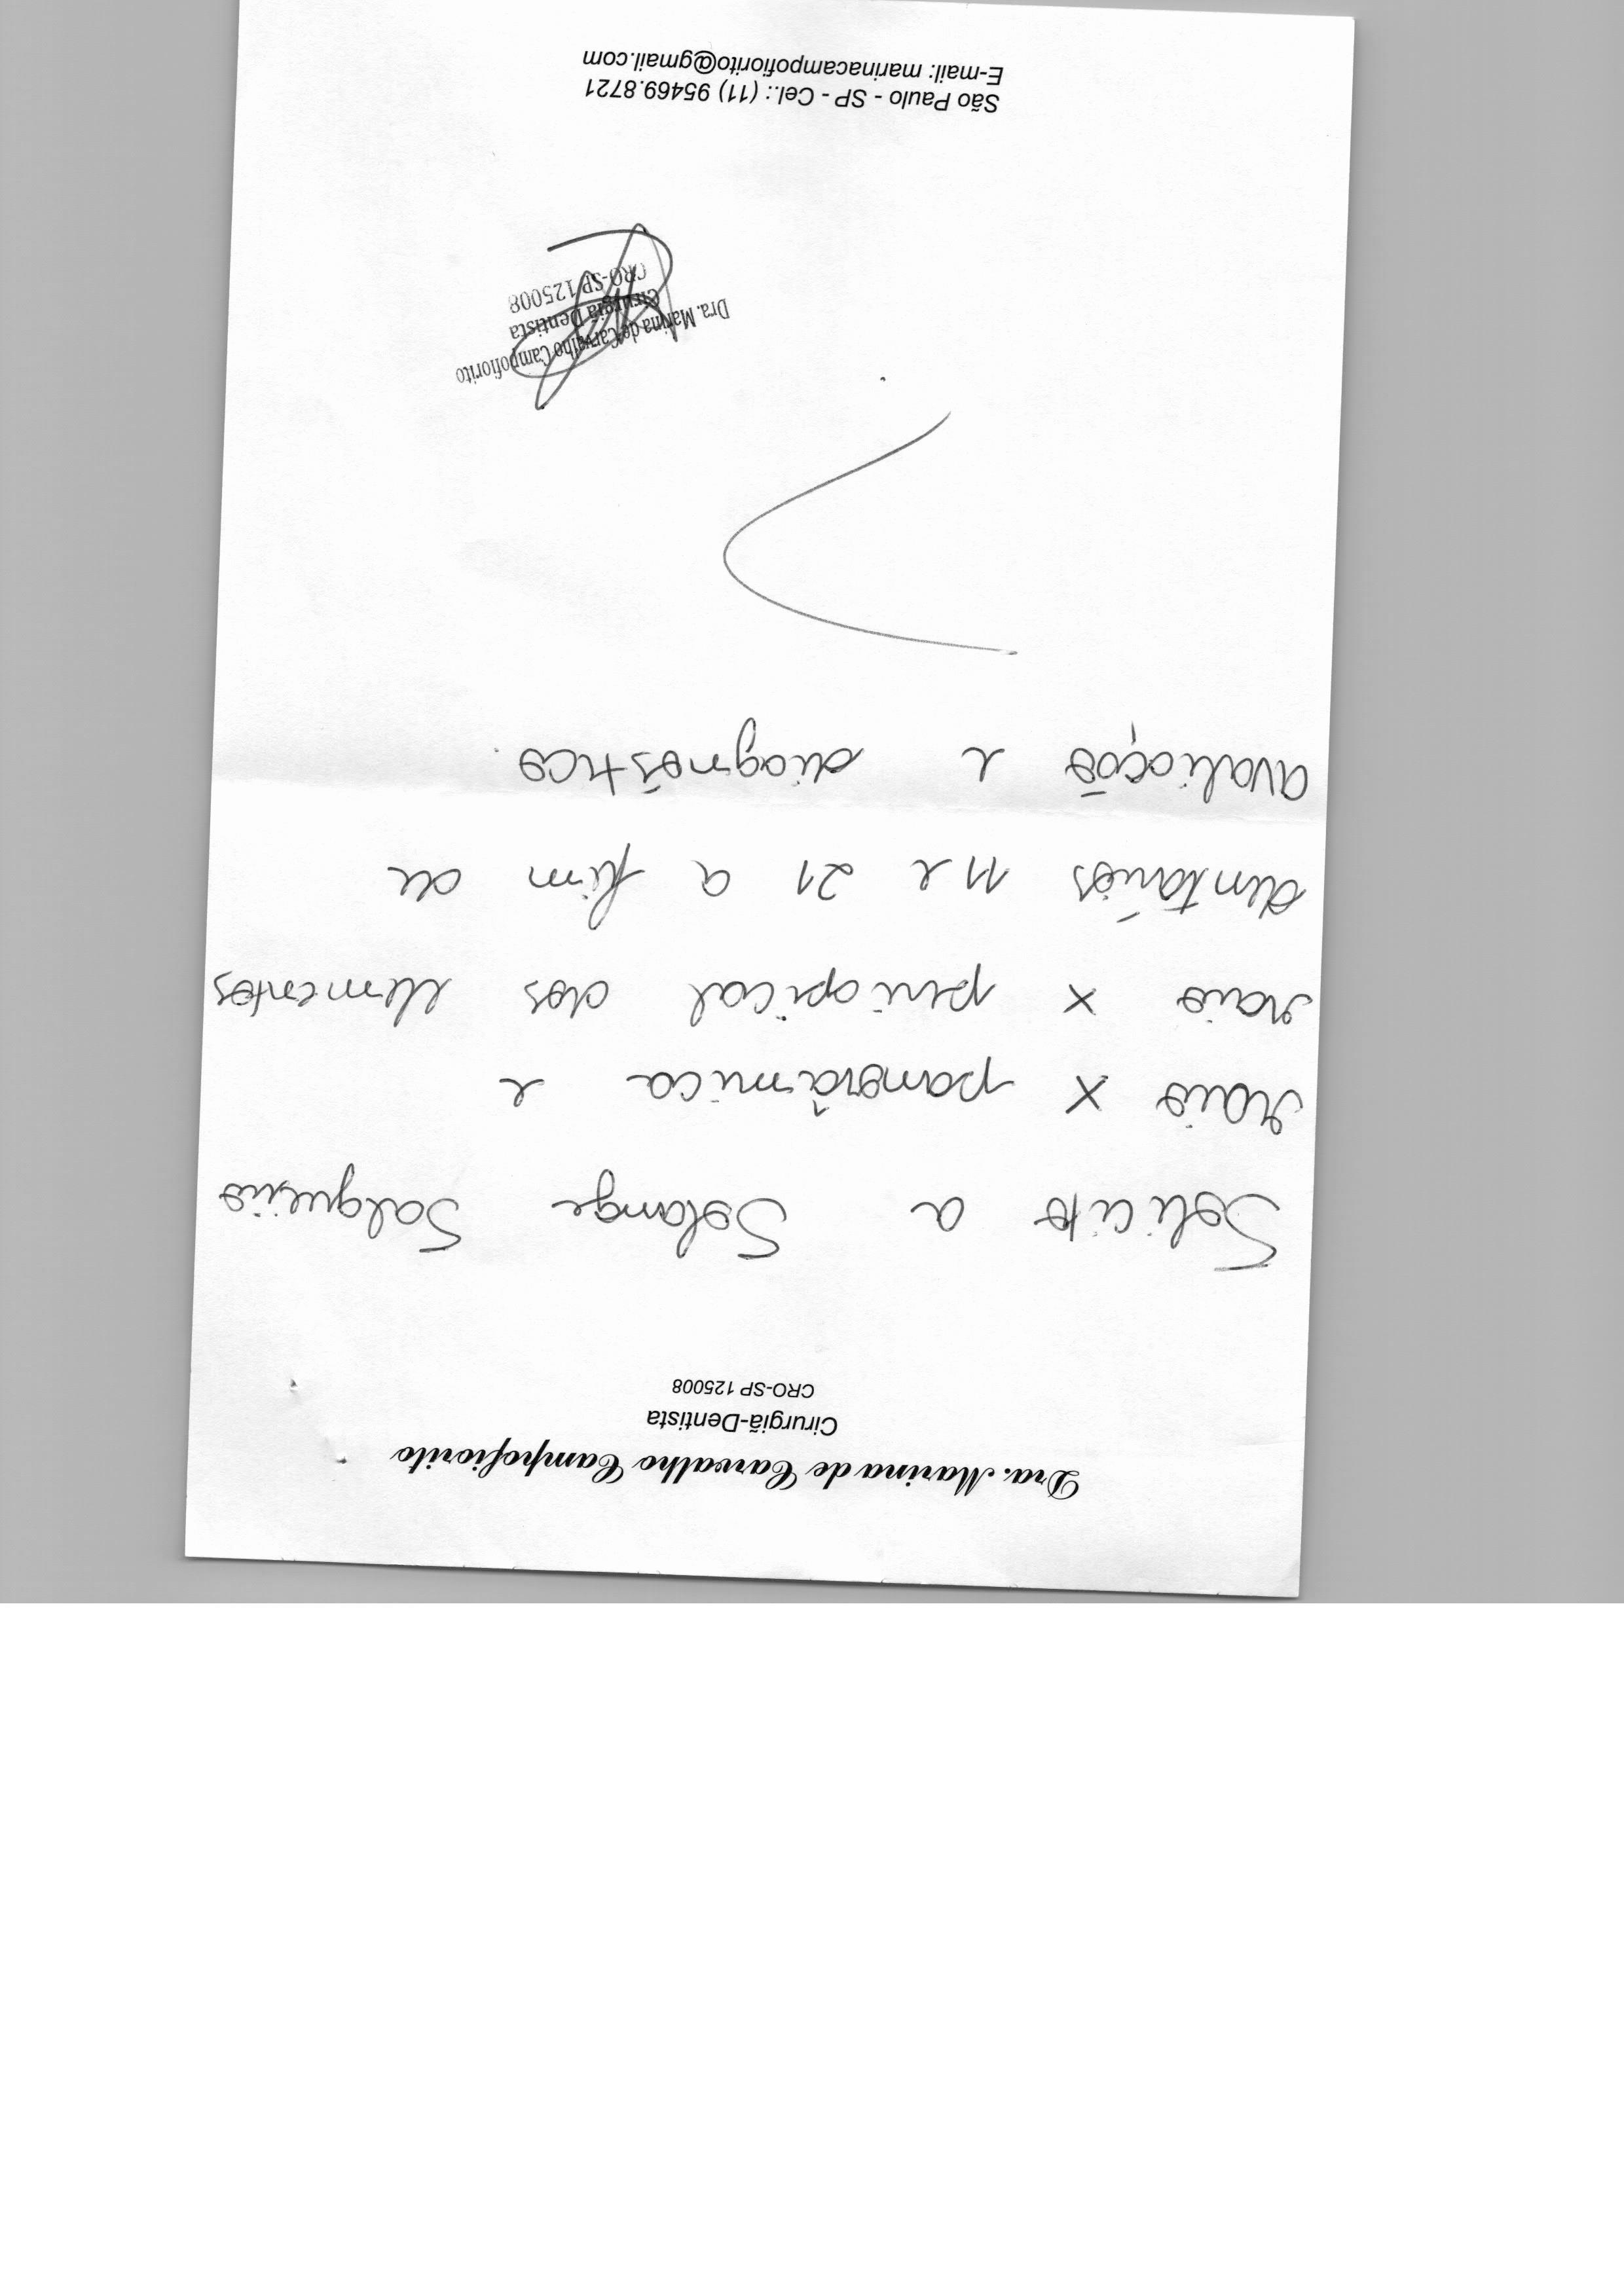 Dra. Marina de Carvalho Campofiorito
Cirurgiã-Dentista
CRO-SP 125008
Solicito a Solange Salgueiro
raio x panorâmica e
raio x periapical dos elementos
dentários 11 e 21 a fim de
avaliação e diagnóstico.
Dra. Marina de Carvalho Campofiorito
Cirurgiã Dentista
CRO-SP 125008
São Paulo - SP - Cel.: (11) 95469.8721
E-mail: marinacampofiorito@gmail.com